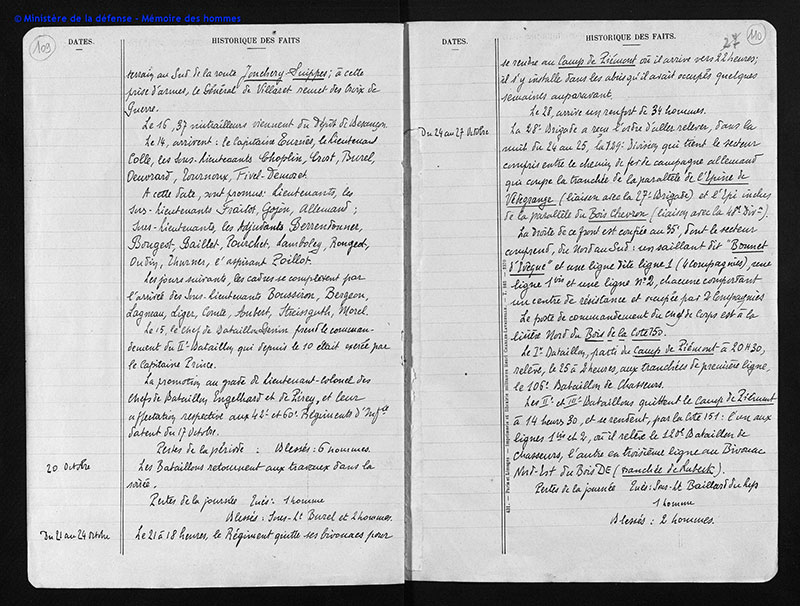 © Ministère de la défense - Mémoire des hommes
109
DATES.
HISTORIQUE DES FAITS
terrain au Sud de la route Jonchery-Suippes; à cette
prise d'armes, le Général de Villaret remet des Croix de
Guerre.
Le 16, 37 mitrailleurs viennent du Dépôt de Besançon.
Le 14, arrivent : le Capitaine Tournès, le Lieutenant
Colle, les Sous-Lieutenants Choplin, Crost, Burel,
Tournoux, Pivel-Demoret
A cette date, sont promus: Lieutenants, les
Sous-Lieutenants Fraitot, Gojon, Allemand;
Sous-Lieutenants, les Adjudants Perrentonner,
Bougeot, Gaillet, Pourchet, Lamboley, Rouget,
Oudin, Thurner, l'aspirant Poillot.
Les jours suivants, les cadres se complètent par
l'arrivée des Sous-Lieutenants Boussiron, Bergeon,
Lagneau, Liger, Comte, Aubert, Streissguth, Morel.
Le 15, le Chef de Bataillon prend le comman-
dement du IIe Bataillon qui depuis le 10 était exercé par
le Capitaine Prince.
La promotion au grade de Lieutenant-colonel des
chefs de Bataillon Engelhard et de Pirey, et leur
affectation respective aux 42e et 60e Régiments d'Infie
datent du 17 Octobre.
Pertes de la période : Blessés: 6 hommes.
20 Octobre
Les Bataillons retournent aux travaux dans la
soirée.
Pertes de la journée Tués: 1 homme
Blessés: Sous-Lt Burel et 2 hommes.
Du 21 au 24 Octobre
Le 21 à 18 heures, le Régiment quitte ses bivouacs pour
27
110
DATES.
HISTORIQUE DES FAITS.
se rendre au Camp de Piémont où il arrive vers 22 heures;
il s'y installe dans les abris qu'il avait occupés quelques
semaines auparavant.
Le 23, arrive un renfort de 34 hommes.
Du 24 au 27 Octobre
La 28e Brigade a reçu l'ordre d'aller relever, dans la
nuit du 24 au 25, la 129e Division qui tient le secteur
compris entre le chemin de fer de campagne allemand
qui coupe la tranchée de la parallèle de l'Epine de
Vedegrange (liaison avec la 27e Brigade) et l'Epi inclus
de la parallèle du Bois Chevron (liaison avec la 48e Divon).
La droite de ce front est confiée au 35e, dont le secteur
comprend, du Nord au Sud : un saillant dit "Bonnet
d'Evêque" et une ligne dite ligne 1 (4 Compagnies), une
ligne 1 bis et une ligne n°2, chacune comportant
un centre de résistance et occupée par 2 Compagnies
Le poste de commandement du Chef de Corps est à la
lisière Nord du Bois de la Cote 150.
Le Ier Bataillon, parti du Camp de Piémont à 20H30,
relève, le 25 à 2 heures, aux tranchées de première ligne,
le 106e Bataillon de Chasseurs.
Les IIe et IIIe Bataillons quittent le Camp de Piémont
à 14 heures 30, et se rendent, par la Cote 151 : l'un aux
lignes 1 bis et 2, où il relève le 120e Bataillon de
chasseurs, l'autre en troisième ligne au Bivouac
Nord-Est du Bois DE (tranchée de Lubeck).
Pertes de la journée Tués: Sous-Lt Baillard du
1 homme
Blessés : 2 hommes.